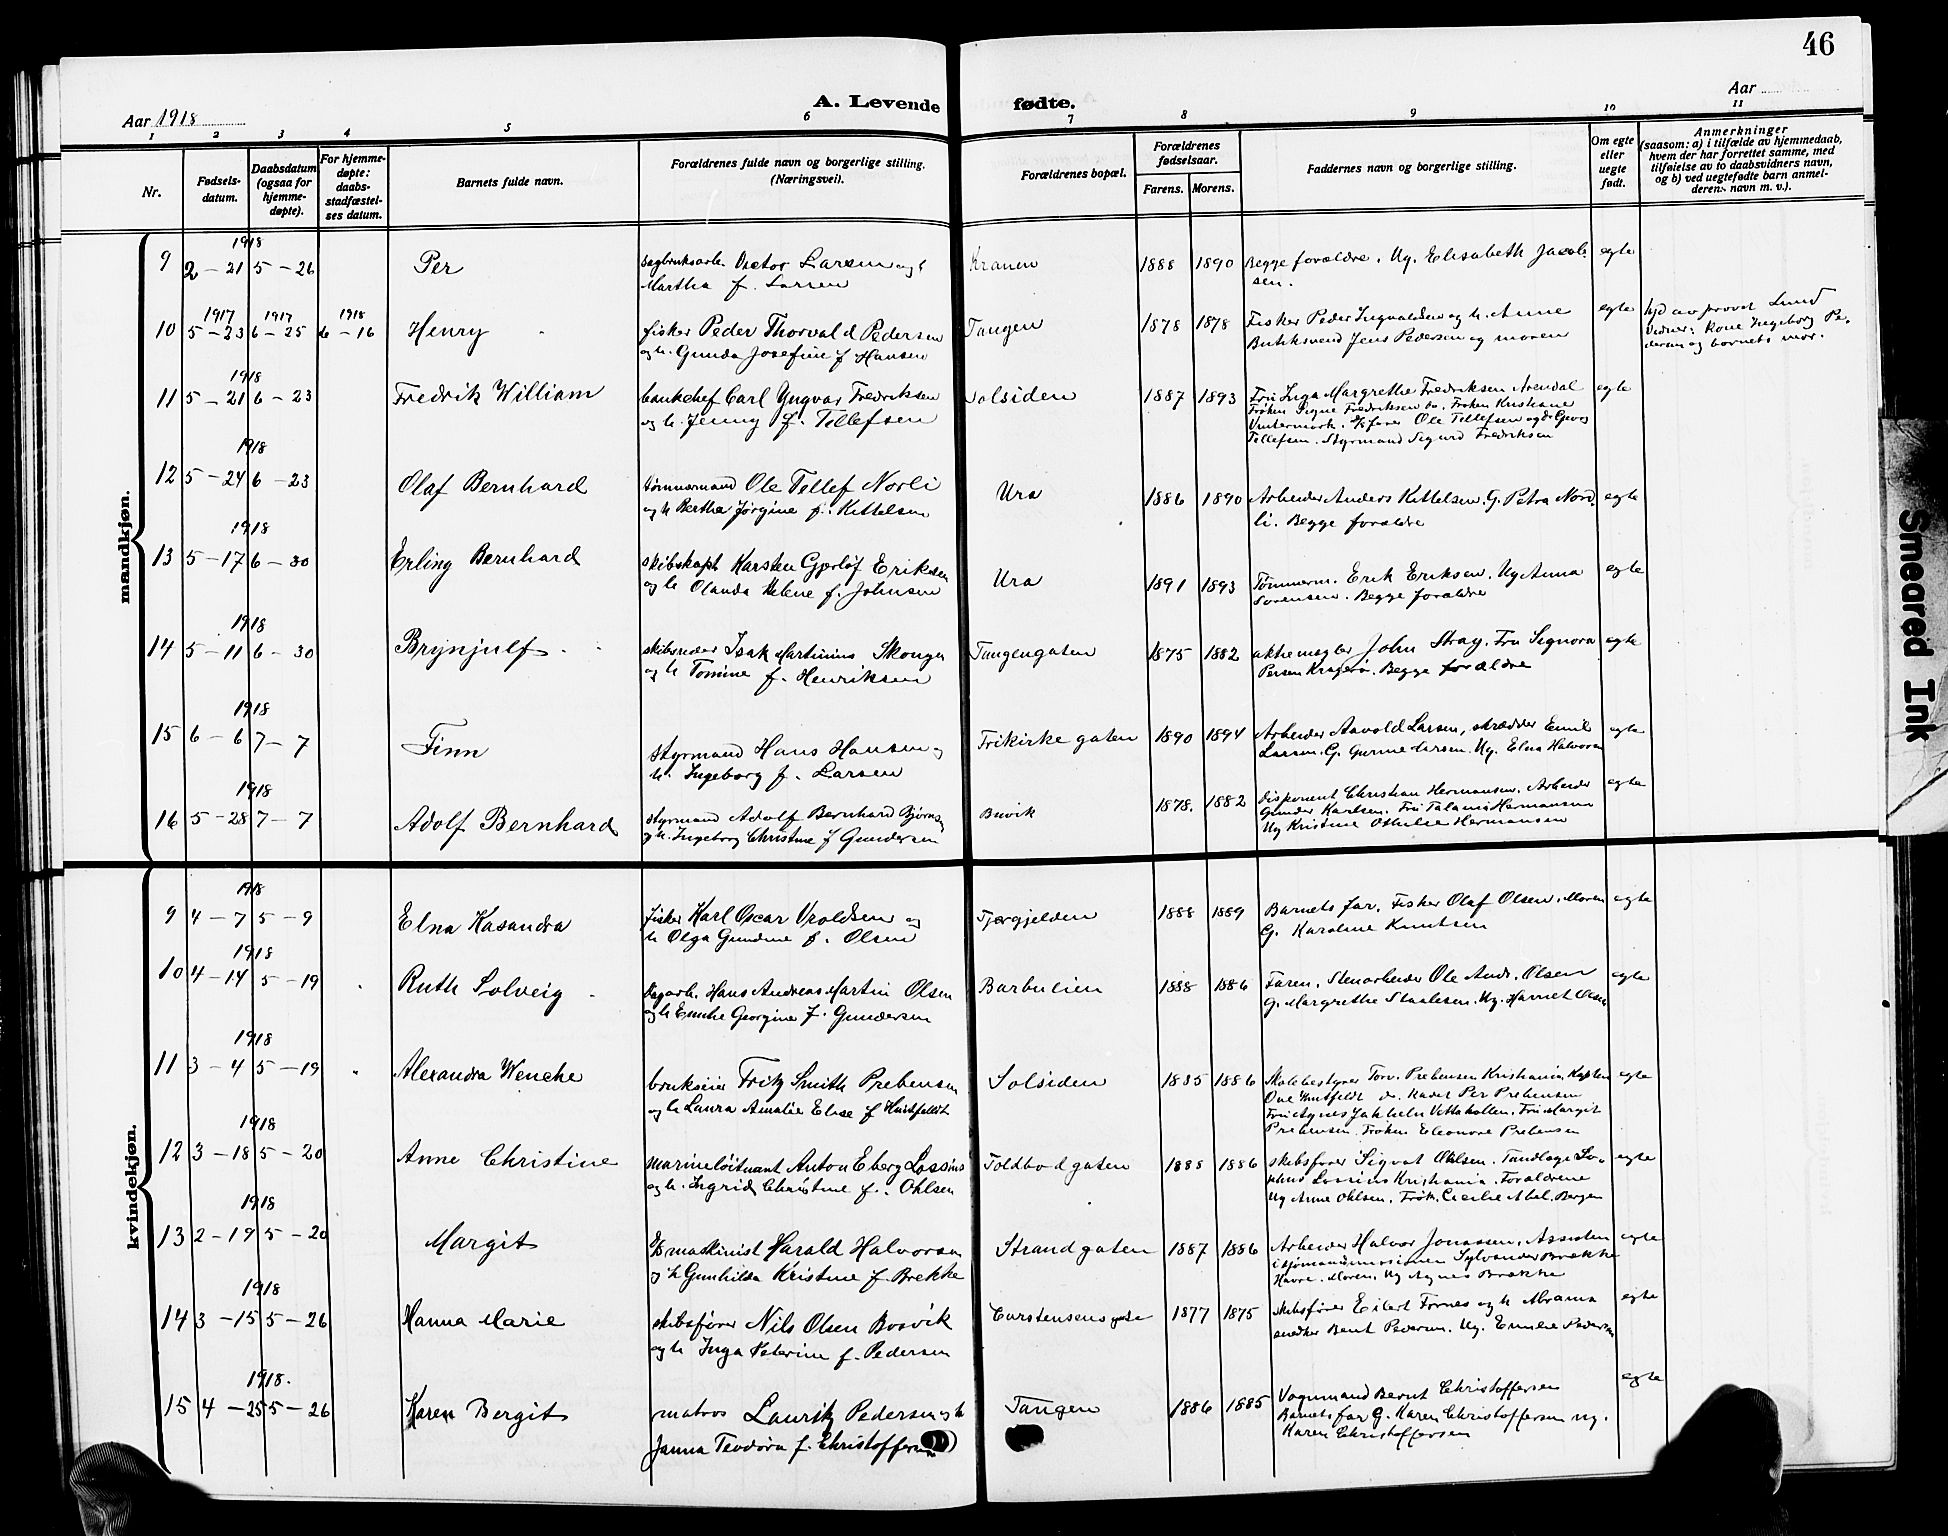 46
Aar 1918
A. Levende fødte.
Aar
1 2 3 4 5 6 7 8 9 10 11
Nr.
Fødsels-
datum.
Daabsdatum
(ogsaa for
hjemme-
døpte).
For hjemme-
døpte:
daabs-
stadfæstel-
ses datum.
Barnets fulde navn.
Forældrenes fulde navn og borgerlige stilling.
(Næringsvei).
Forældrenes bopæl.
Forældrenes
fødselsaar.
Farens. Morens.
Faddernes navn og borgerlige stilling.
Om egte
eller
uegte
født.
Anmerkninger
(saasom: a) i tilfælde av hjemmedaab,
hvem der har forrettet samme, med
tilføielse av to daabsvidners navn,
og b) ved uegtefødte barn anmel-
derens navn m. v.).
mandkjøn.
1918
9 2 – 21 5 – 26 Per sagbruksarb. Larsen og h Kranen 1888 1890 Begge forældre. Ug. Elisabeth Jacob- egte
Martha f. Larsen sen.
1917 1917 1918
10 5 – 23 6 – 25 6 – 16 Henry fisker Peder Thorvald Pedersen Tangen 1878 1878 Fisker Peder Ingvaldsen og h. Anne egte Lund
og h. Gunda Josefine f Hansen Jens Pedersen og moren kone Ingeborg Pe-
dersen og barnets mor.
1918
11 5 – 21 6 – 23 Fredrik William bankchef Carl Yngvar Fredriksen Solsiden 1887 1893 Fru Inga Margrethe Fredriksen Arendal egte
og h. Jenny f. Tellefsen Frøken Signe Fredriksen do. Frøken Kristiane
Ole Tellefsen
Tellefsen. Styrmand Sigurd Fredriksen
1918
12 5 – 24 6 – 23 Olaf Bernhard tømmermand Ole Tellef Norli Ura 1886 1890 Arbeider Anders Kittelsen. G. Petra Nord- egte
og h Berthe Jørgine f. Kittelsen li. Begge forældre
1918
13 5 – 17 6 – 30 Erling Bernhard skibskapt Karsten Gjerløf Eriksen Ura 1891 1893 Tømmerm. Erik Eriksen. Ug Anna egte
og h Olanda Helene f. Johnsen Sørensen. Begge forældre
1918
14 5 – 11 6 – 30 Brynjulf skibsreder Isak Martinius Tangengaten 1875 1882 aktiemegler John Stray. Fru Signora egte
og h Tomine f. Henriksen Persen Kragerø. Begge forældre
1918
15 6 – 6 7 – 7 Finn styrmand Hans Hansen og Frikirke gaten 1890 1894 Arbeider Larsen, skrædder Emil egte
h. Ingeborg f. Larsen Larsen. G. Larsen. Ug. Elna
1918
16 5 – 28 7 – 7 Adolf Bernhard styrmand Adolf Bernhard Buvik 1878. 1882 disponent Christian Hermansen. Arbeider egte
og h. Ingeborg Christine f Gundersen Gunder Karlsen. Fru Hermansen
Ug Kristine Othilie Hermansen
kvindekjøn.
1918
9 4 – 7 5 – 9 Elna Kasandra fisker Karl Oscar Vroldsen og Tjærgjelden 1888 1889 Barnets far. Fisker Olaf Olsen. Moren egte
h Olga Gundine f. Olsen G. Karoline Knutsen
1918
10 4 – 14 5 – 19 Ruth Solveig Hans Andreas Martin Olsen Barbulien 1888 1886 Faren. Stenarbeider Ole Andr. Olsen egte
og h Emilie Georgine f. Gundersen G. Margrethe Staalesen. Ug. Harriet Olsen
1918
11 3 – 4 5 – 19 Alexandra Wenche brukseier Fritz Smith Prebensen Solsiden 1885 1886 Skolebestyrer Torv. Prebensen Kristiania Kaptein egte
og h Laura Amalie Elise f Huitfeldt Ove Huitfeldt do. Kadet Per Prebensen
Fru Agnes Fru Margit
Prebensen. Frøken Eleonore Prebensen
1918
12 3 – 18 5 – 20 Anne Christine marineløitnant Anton Eberg Lossius Toldbodgaten 1888 1886 skibsfører Sigvat Ohlsen. Tandlæge egte
og h. Ingrid Christine f. Ohlsen Lossius Kristiania. Forældrene
Ug Anne Ohlsen. Frøk. Cecilie Abel, Bergen
1918
13 2 – 19 5 – 20 Margit maskinist Harald Halvorsen Strandgaten 1887 1886 Arbeider Halvor Jonassen. Assistent egte
og h Gunhilda Kristine f. Brekke i sjømandsmissionen Sylvander Brække
Havre. Moren. Ug Agnes Brække
1918
14 3 – 15 5 – 26 Hanna Marie skibsfører Nils Olsen Bosvik Carstensensgate 1877 1875 skibsfører Eilert Fornes og h Abrama egte
og h Inga f. Pedersen snedker Bent Pedersen. Ug. Emilie Pedersen
1918.
15 4 – 25 5 – 26 Karen Bergit matros Lauritz Pedersen og h Tangen 1886 1885 Vognmand Bernt Christoffersen egte
Janna Teodora f. Christoffersen Barnets far G. Karen Christoffersen Ug.
Karen Christoffersen
Smeared Ink